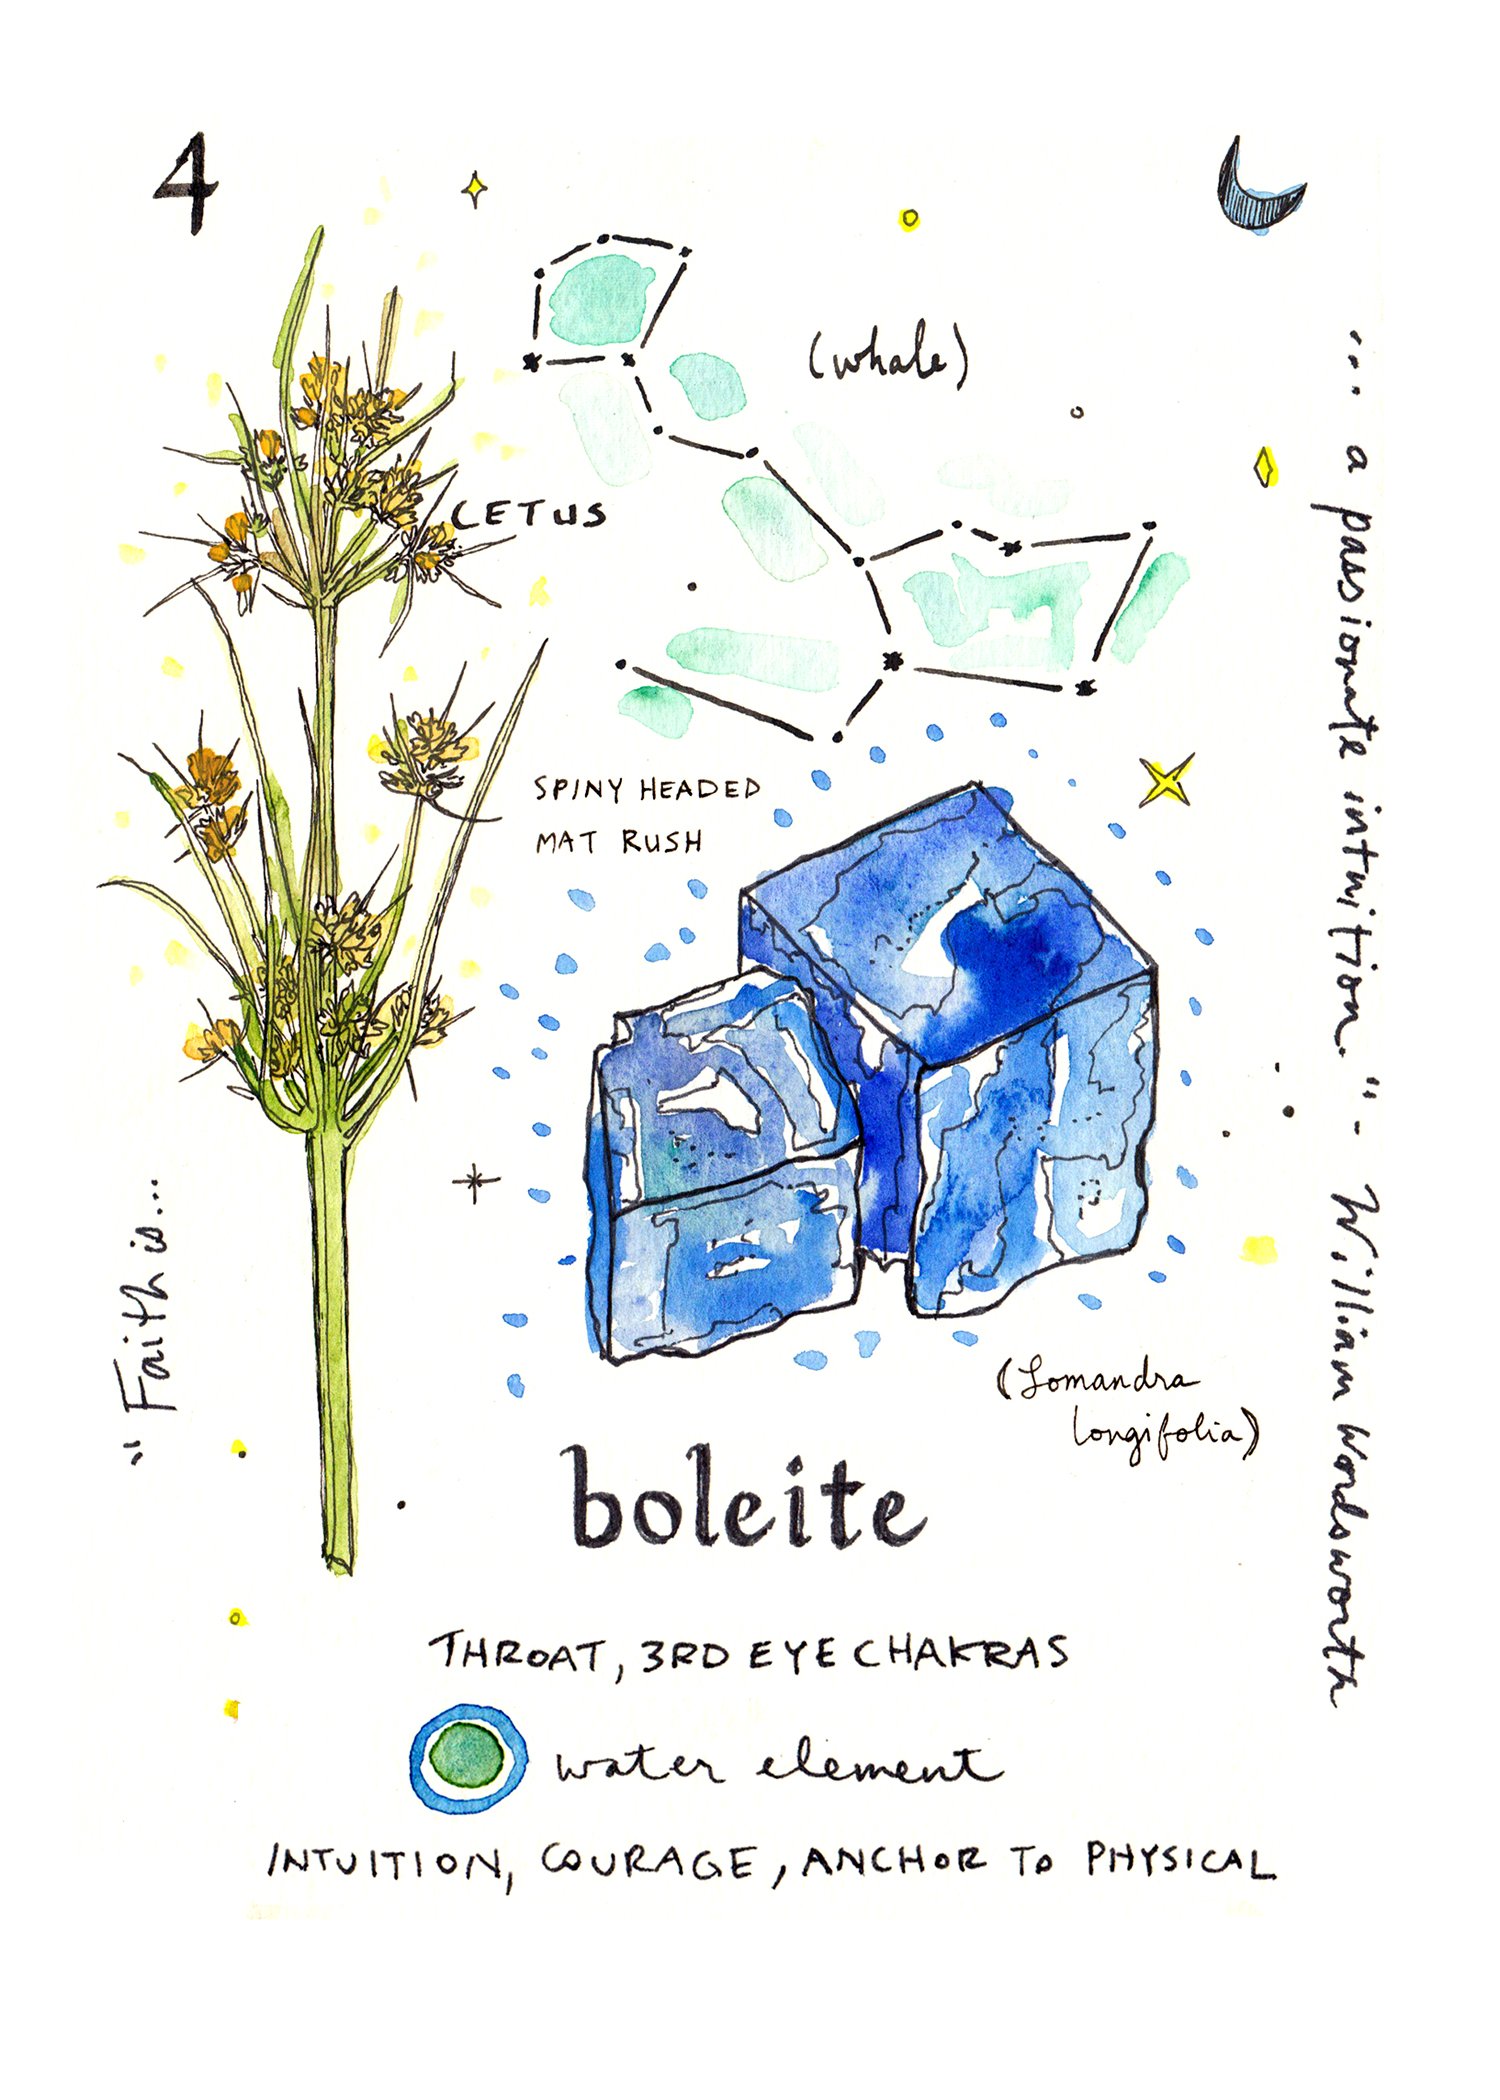 4
(whale)
CETUS
SPINY HEADED
MAT RUSH
"Faith is...
... a passionate intuition." - William Wordsworth
(Lomandra
longifolia)
boleite
THROAT, 3RD EYE CHAKRAS
water element
INTUITION, COURAGE, ANCHOR TO PHYSICAL